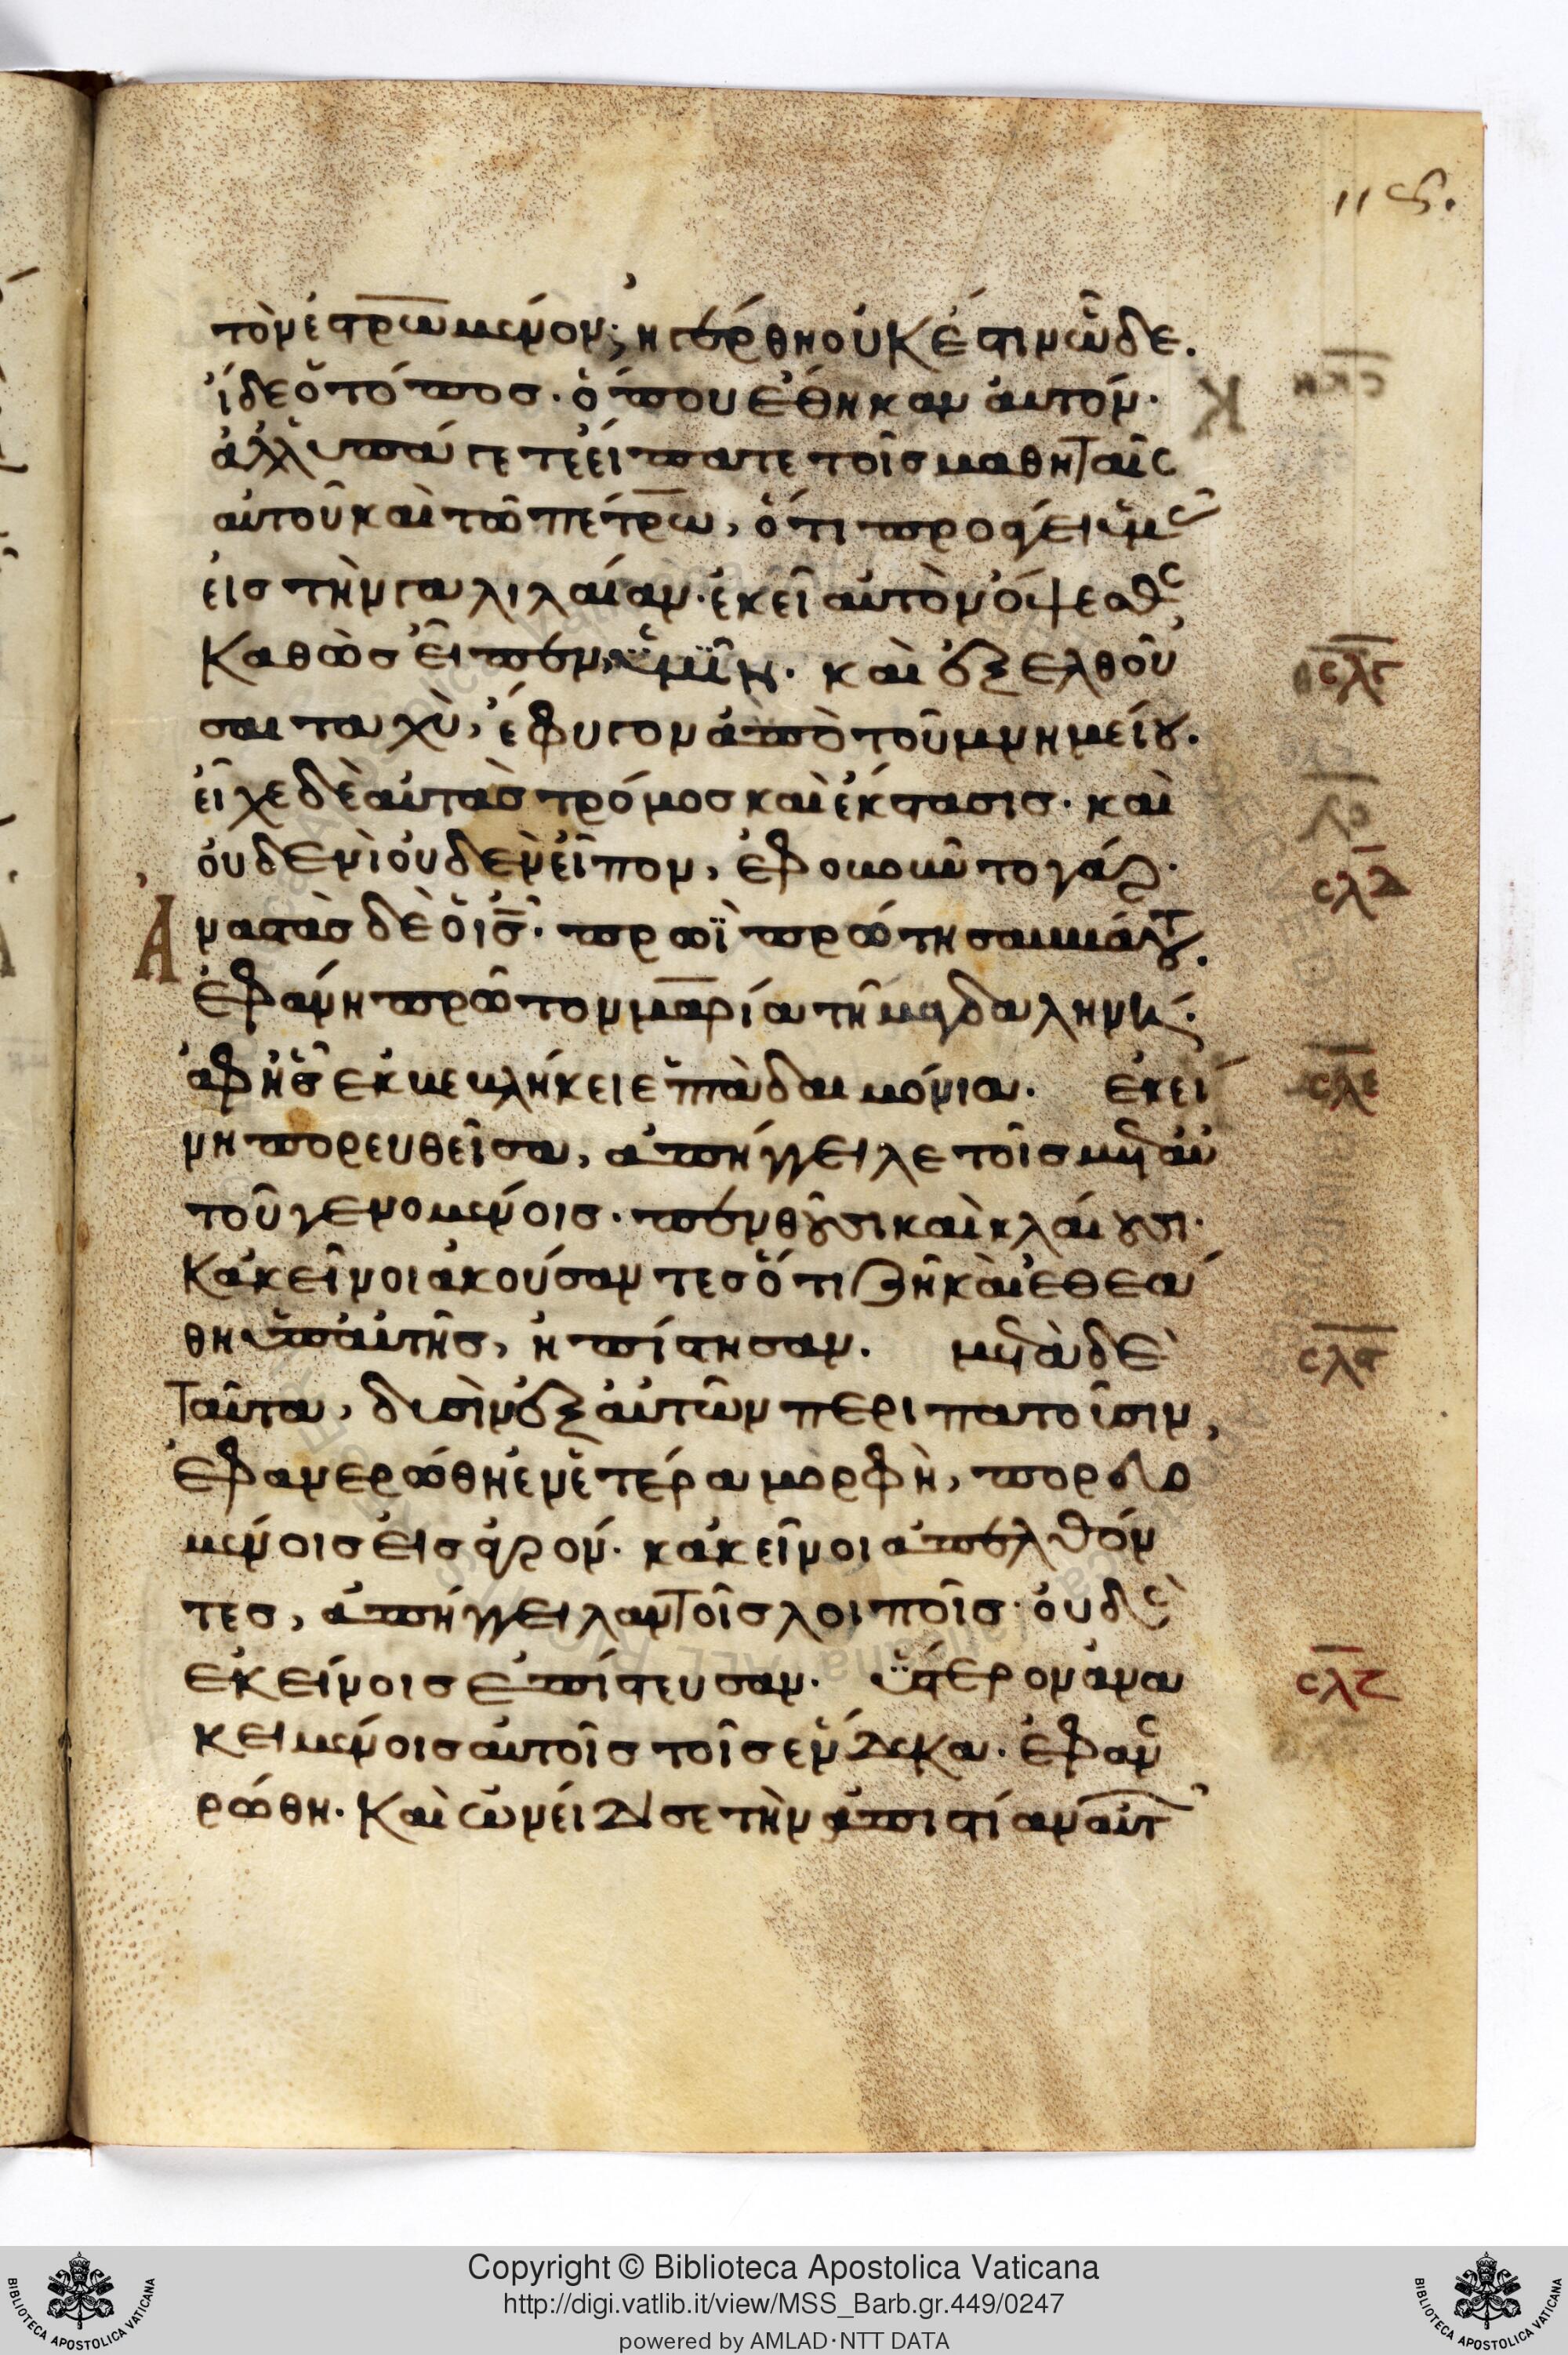 115.
τὸν ἐστρωμένον· ἠγέρθη οὐκ ἔστιν ὧδε.
ἴδε ὁ τόπος· ὅπου ἔθηκαν αὐτόν·
ἀλλ' ὑπάγετε εἴπατε τοῖς μαθηταῖς
αὐτοῦ καὶ τῶ πέτρω, ὅτι προάγει ὑμᾶς
εἰς τὴν γαλιλαίαν· ἐκεῖ αὐτὸν ὄψεσθε
καθὼς εἶπεν ὑμῖν. καὶ ἐξελθοῦ
σαι ταχὺ, ἔφυγον ἀπὸ τοῦ μνημείου.
εἶχε δὲ αὐτὰς τρόμος καὶ ἔκστασις. καὶ
οὐδενὶ οὐδὲν εἶπον, ἐφοβοῦντο γάρ·
Ἀναστὰς δὲ ὁ ις· πρωῒ πρώτη σαββάτου.
ἐφάνη πρῶτον μαρία τῆ μαγδαληνῆ·
ἀφ' ἧς ἐκβεβλήκει ἑπτὰ δαιμόνια. ἐκεί
νη πορευθεῖσα, ἀπήγγειλε τοῖς μετ' αὐ
τοῦ γενομένοις· πενθοῦσι καὶ κλαίουσι·
κἀκεῖνοι ἀκούσαντες ὅτι ζῆ καὶ ἐθεά
θη ὑπ' αὐτῆς, ἠπίστησαν. μετὰ δὲ
ταῦτα, δυσὶν ἐξ αὐτῶν περιπατοῦσιν,
ἐφανερώθη ἐν ἑτέρα μορφῆ, πορευο
μένοις εἰς ἀγρόν. κἀκεῖνοι ἀπελθόν
τες, ἀπήγγειλαν τοῖς λοιποῖς· οὐδὲ
ἐκείνοις ἐπίστευσαν. ὕστερον ἀνα
κειμένοις αὐτοῖς τοῖς ἕνδεκα. ἐφανε
ρώθη. καὶ ὠνείδισε τὴν ἀπιστίαν αὐτ
σλγ
σλδ
σλε
σλς
σλζ
Copyright © Biblioteca Apostolica Vaticana
http://digi.vatlib.it/view/MSS_Barb.gr.449/0247
powered by AMLAD·NTT DATA
BIBLIOTECA APOSTOLICA VATICANA
BIBLIOTECA APOSTOLICA VATICANA